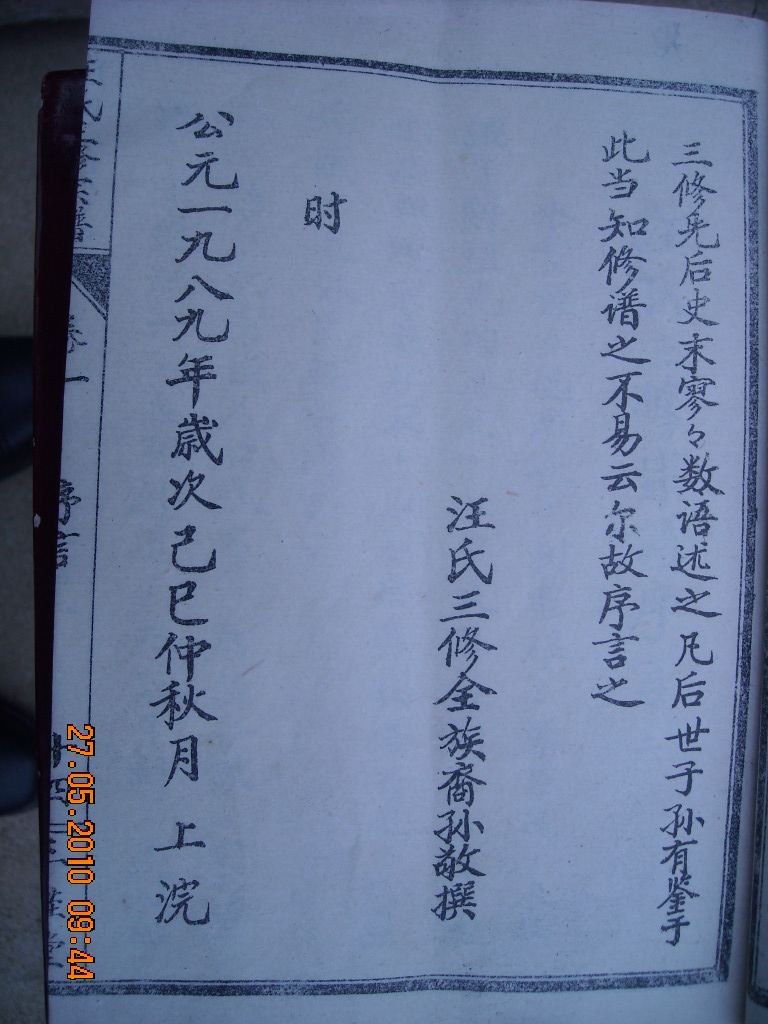 三修先后史末寥々数语述之凡后世子孙有鉴于
此当知修谱之不易云尔故序言之
汪氏三修全族裔孙敬撰
时
公元一九八九年歳次己巳仲秋月上浣
氏 修宗譜
卷一
序言
27.05.2010 09:44